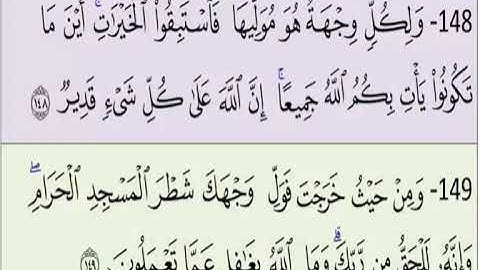 148- وَلِكُلٍّ وِجْهَةٌ هُوَ مُوَلِّيهَا فَاسْتَبِقُوا الْخَيْرَاتِ ۚ أَيْنَ مَا
تَكُونُوا يَأْتِ بِكُمُ اللَّهُ جَمِيعًا ۚ إِنَّ اللَّهَ عَلَىٰ كُلِّ شَيْءٍ قَدِيرٌ ﴿١٤٨﴾
149- وَمِنْ حَيْثُ خَرَجْتَ فَوَلِّ وَجْهَكَ شَطْرَ الْمَسْجِدِ الْحَرَامِ ۖ
وَإِنَّهُ لَلْحَقُّ مِن رَّبِّكَ ۗ وَمَا اللَّهُ بِغَافِلٍ عَمَّا تَعْمَلُونَ ﴿١٤٩﴾